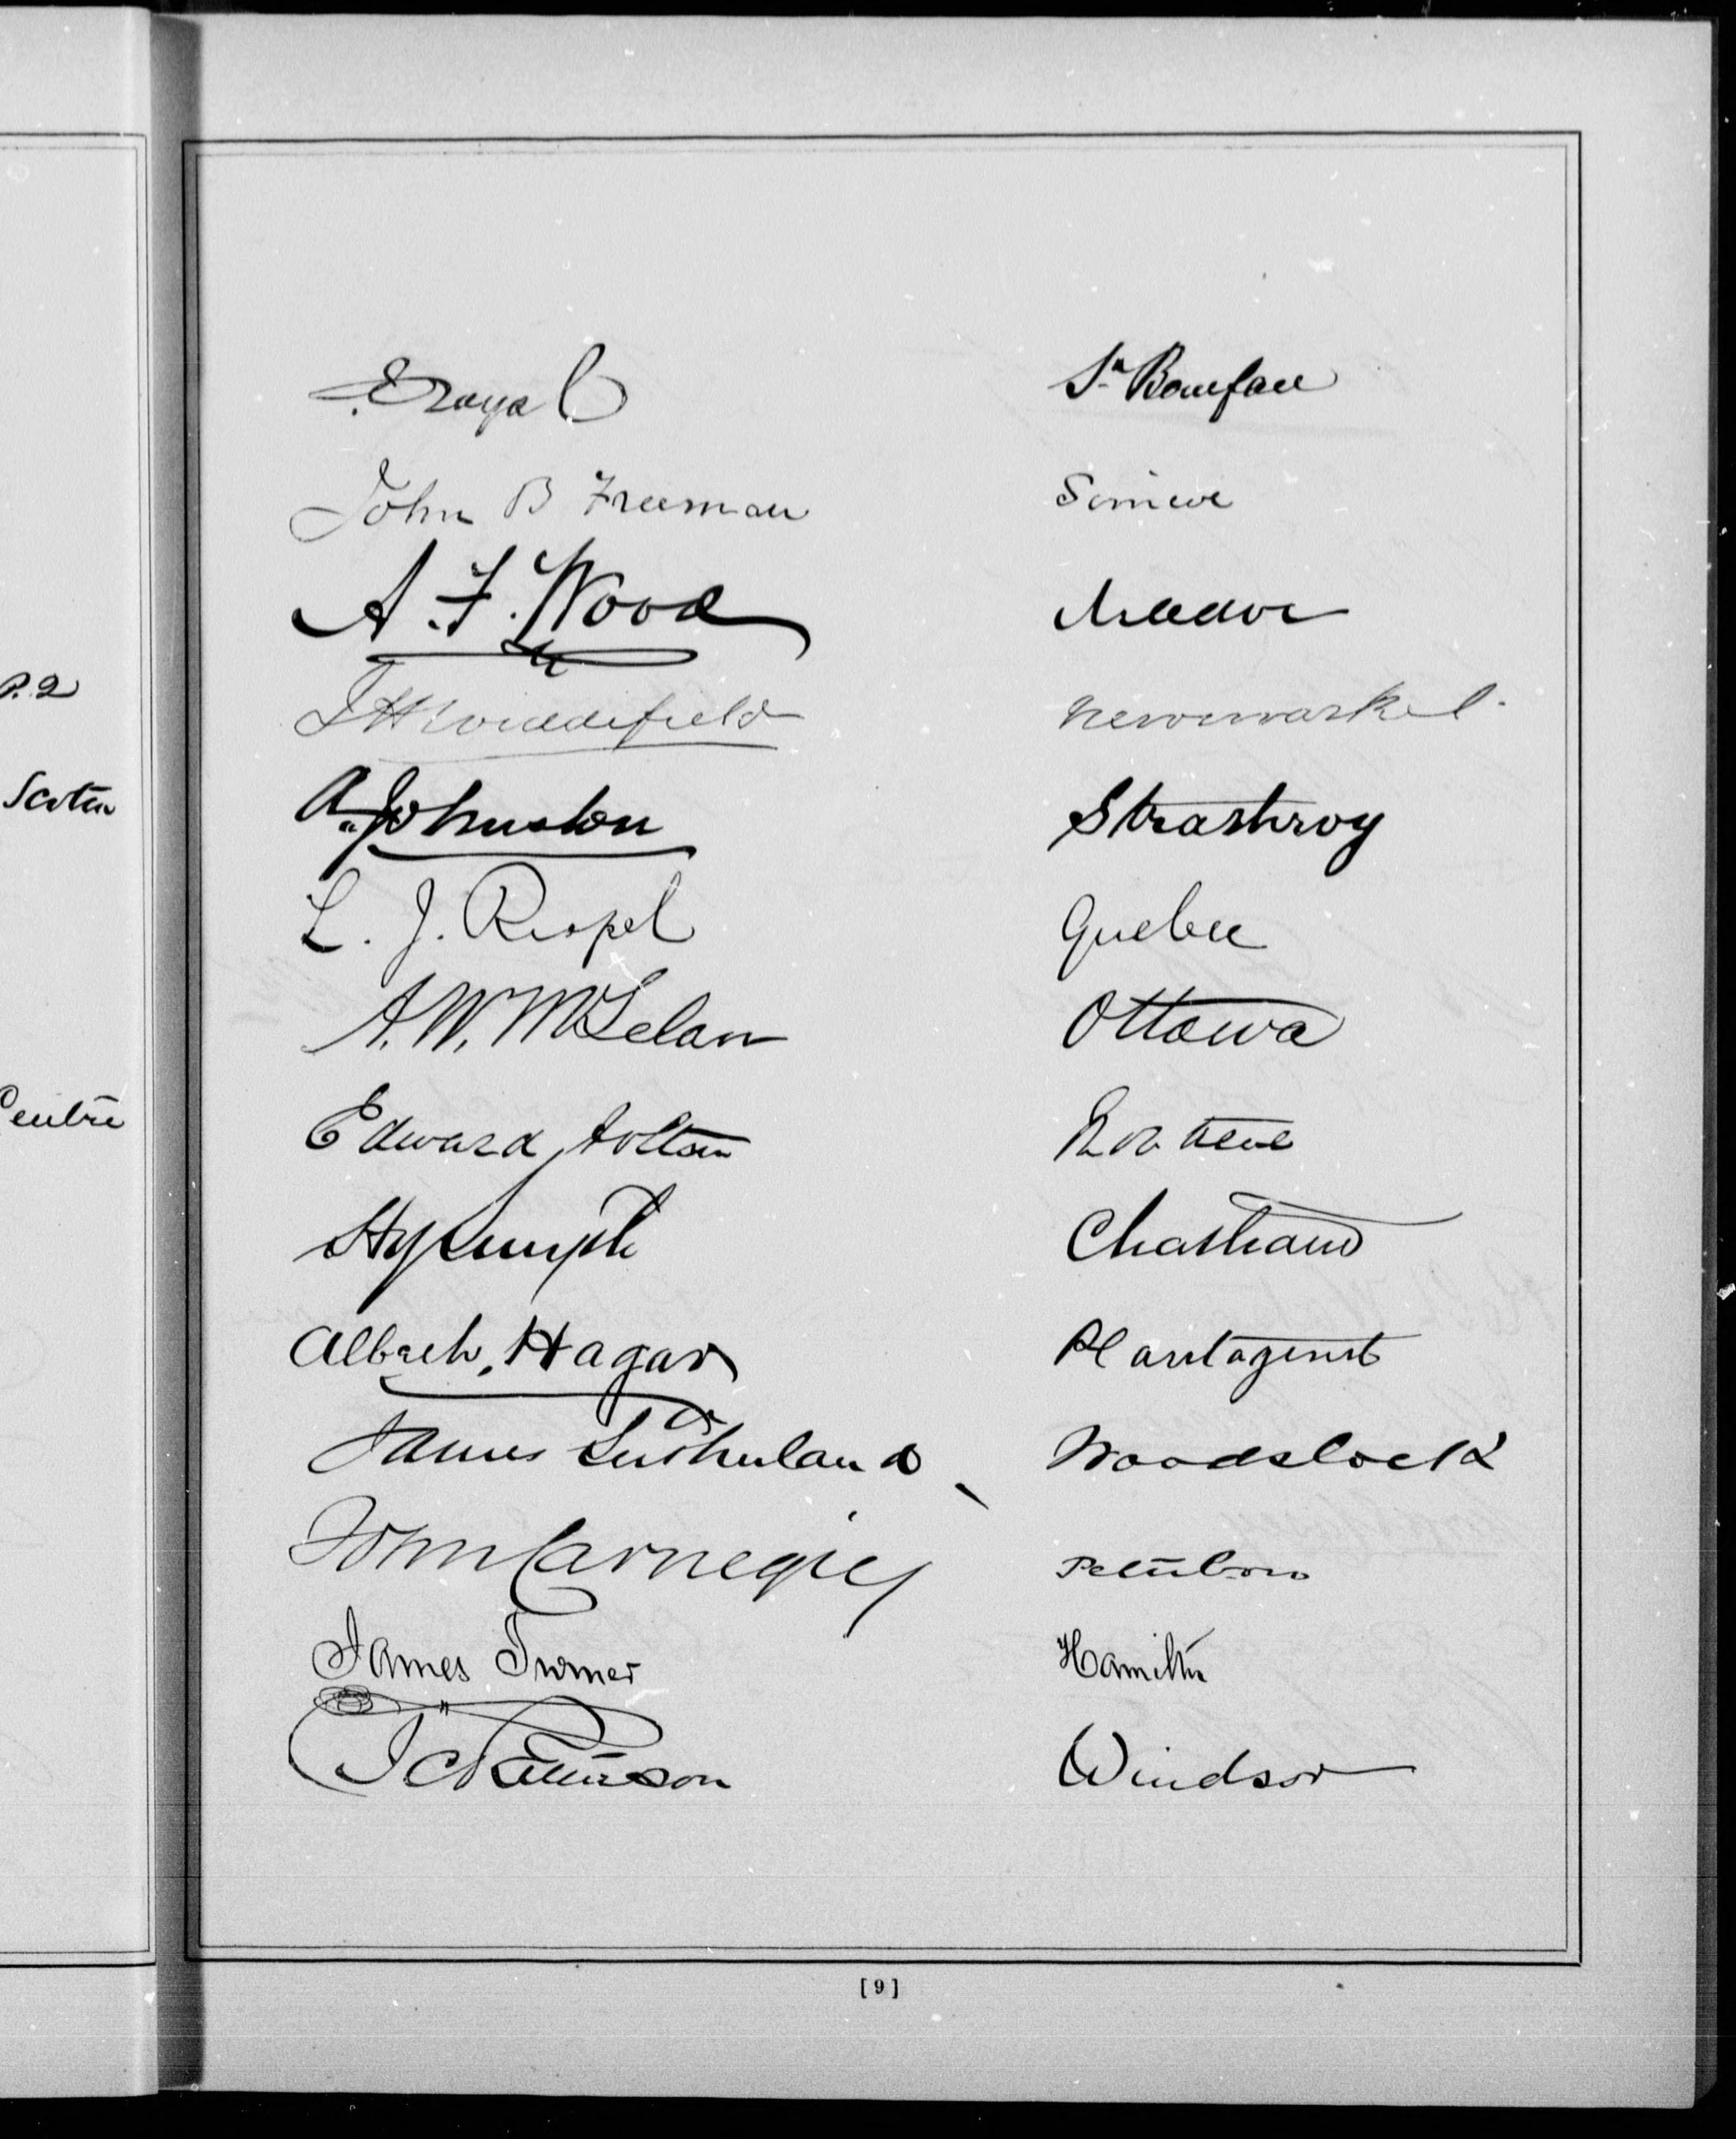 P.2
Scotia
Centre
J Royal St Boniface
John B Freeman Simcoe
A. F. Wood Madoc
J H Widdifield Newmarket
A. Johnston Strathroy
L. J. Riopel Quebec
A. W. McLelan Ottawa
Edward Holton
Albert Hagar Plantagenet
James Sutherland Woodstock
John Carnegie Peterboro
James Turner Hamilton
J C Patterson Windsor
[9]